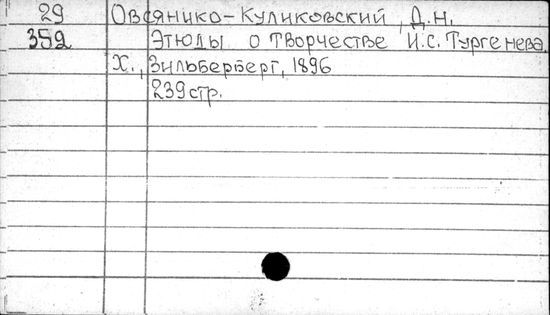 29 Овсянико-Куликовский, Д.Н.
352 Этюды о творчестве И.С. Тургенева.
Х., Зильберберг, 1896
239 стр.